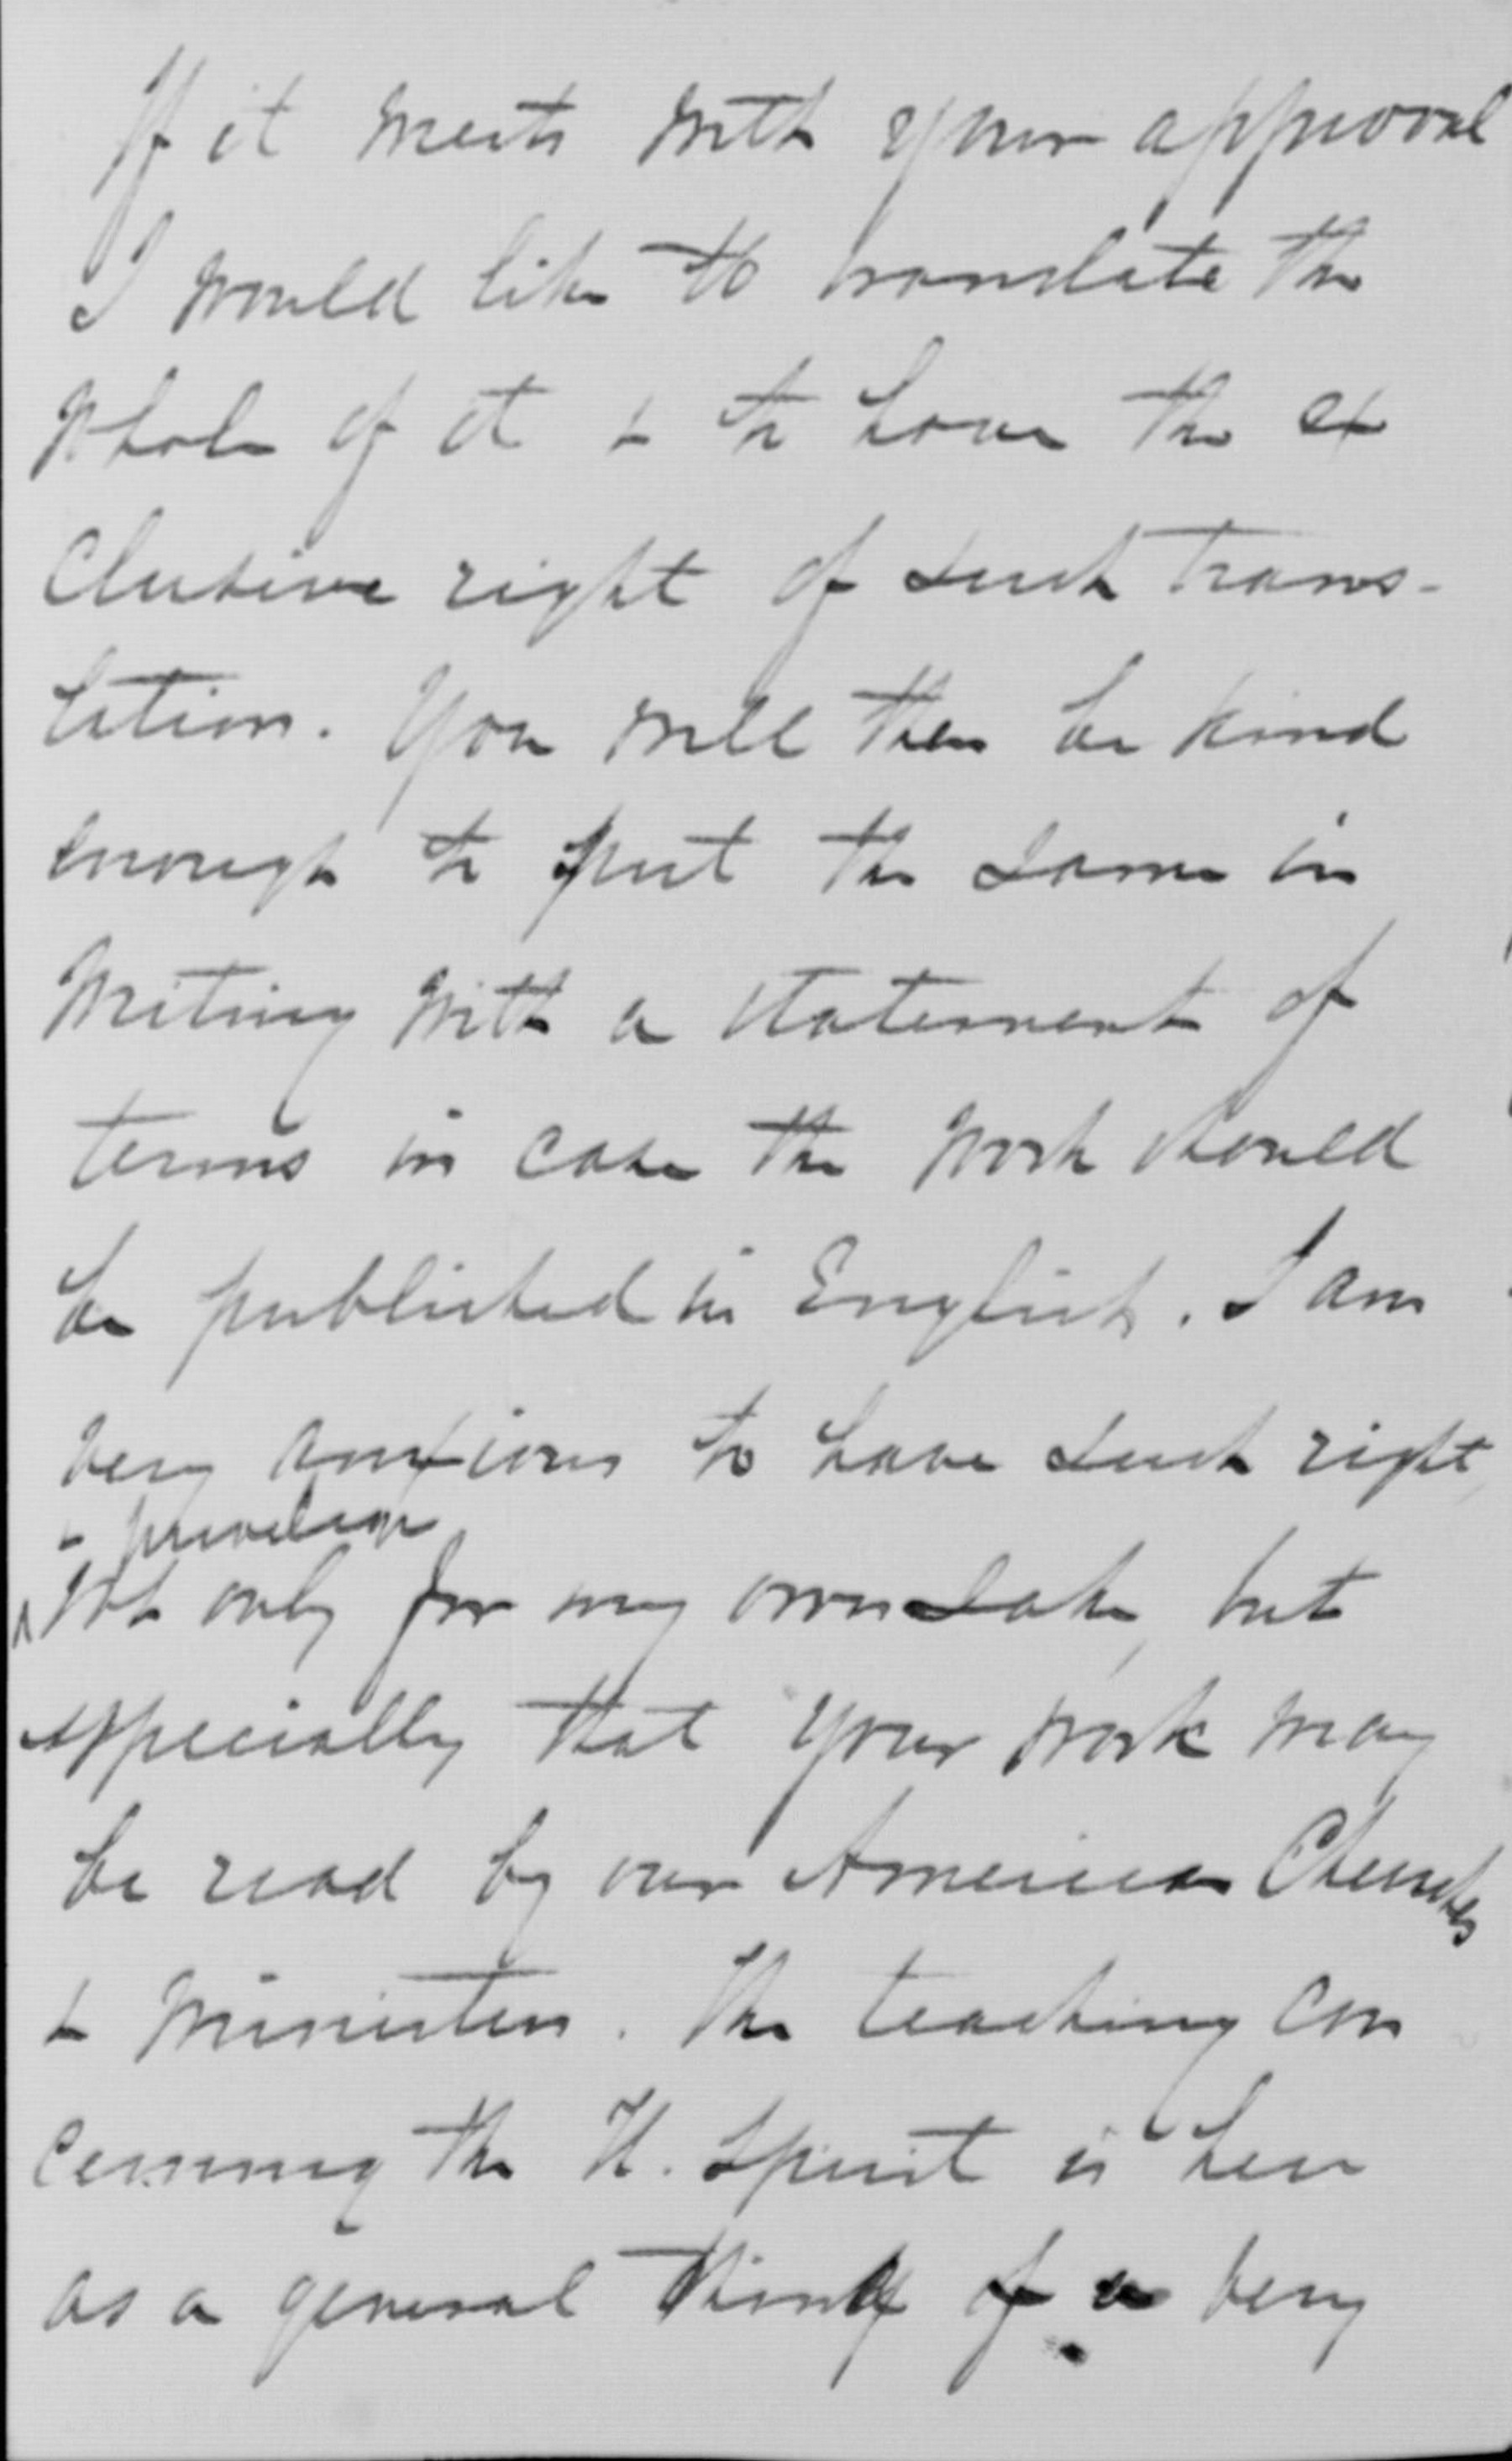 If it meets with your approval
I would like to translate the
whole of it & to have the ex
clusive right of such trans-
lation. You will then be kind
enough to put the same in
writing with a statement of
terms in case the work should
be published in English. I am
very anxious to have such right
& privelege
not only for my own sake, but
especially that your work may
be read by our American Churches
& ministers. The teaching con
cerning the H. Spirit is here
as a general thing of a very